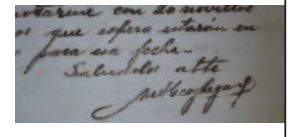 con 20 novillos
os que espero estarán en
para esa fecha_
Saludolos atte